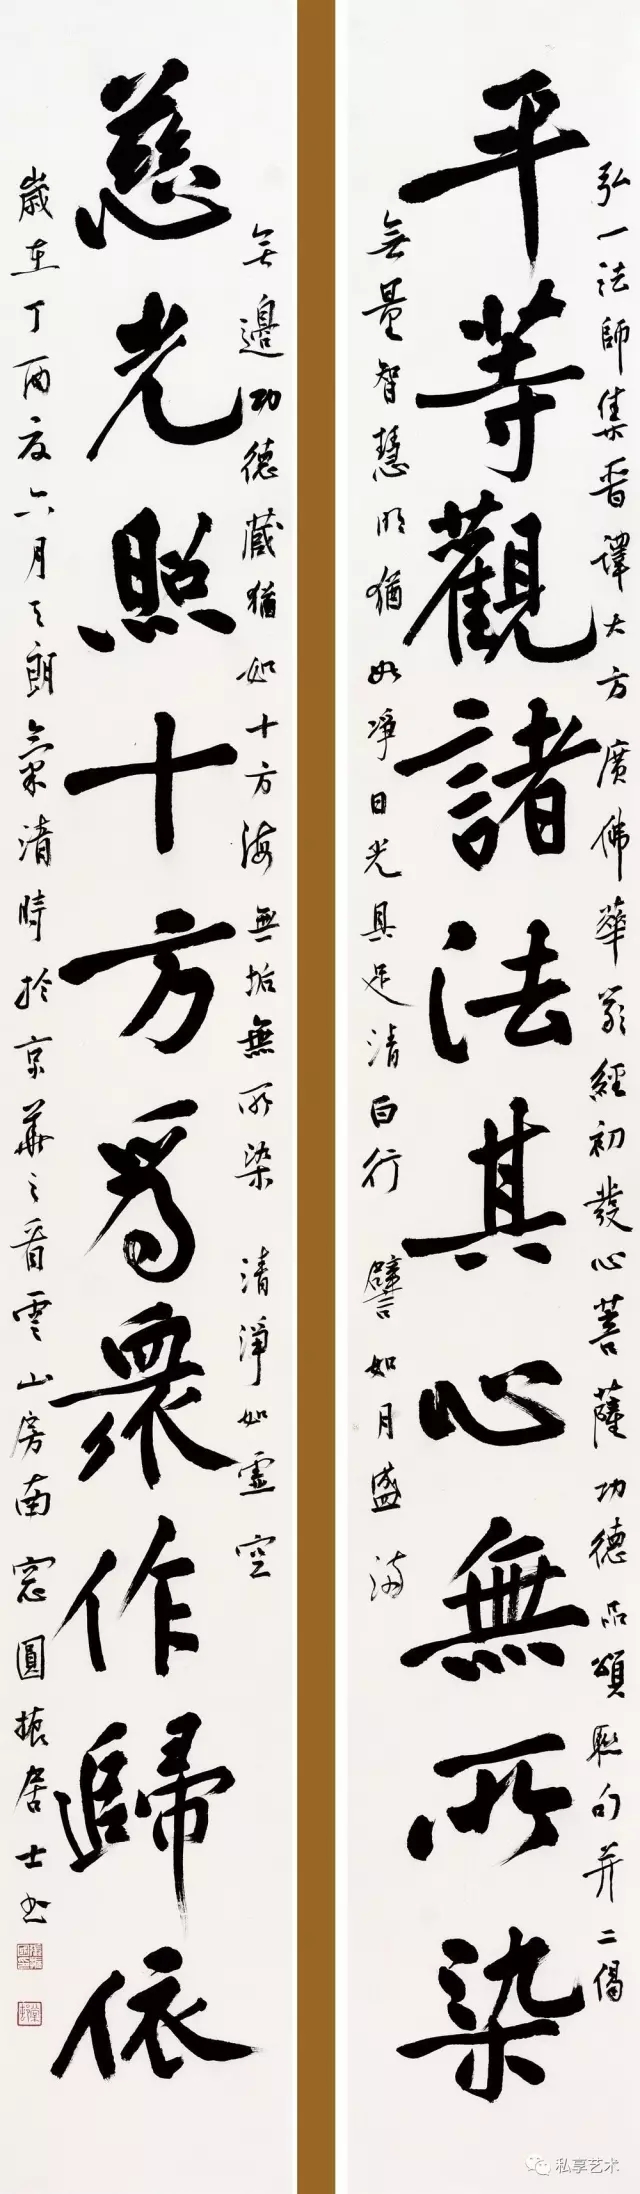 弘一法師集晉譯大方廣佛華嚴經初發心菩薩功德品頌聯句并二偈
平等觀諸法其心無所染
無量智慧明猶如淨日光具足清白行 譬如月盛滿
無邊功德藏猶如十方海無垢無所染 清淨如虛空
慈光照十方爲衆作歸依
歲在丁酉夏六月天朗氣清時於京華之看雲山房南窗圓振居士書
私享艺术